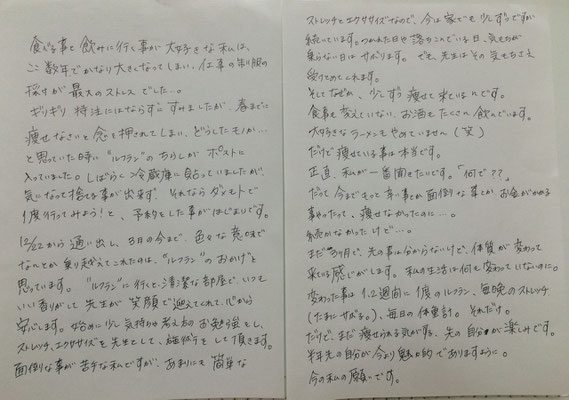 食べる事と飲みに行く事が大好きな私は、
ここ数年でかなり大きくなってしまい、仕事の制服の
採寸が最大のストレスでした…。
ギリギリ特注にはならずにすみましたが、春までに
痩せなさいと念を押されてしまい、どうしたモノか…
と思っていた時に"ルフラン"のちらしがポストに
入っていました。しばらく冷蔵庫に貼っていましたが、
気になって捨てる事が出来ず、それならダメモトで
1度行ってみよう!と、予約をした事がはじまりです。
12/22から通い出し、3月の今まで、色々な意味で
なんとか乗り越えてこれたのは、"ルフラン"のおかげと
思っています。"ルフラン"に行くと、清潔な部屋で、いつも
いい香りがして先生が笑顔で迎えてくれて、心から
安心します。始めに少し気持ちや考え方のお勉強をし、
ストレッチ、エクササイズを先生として、施術をして頂きます。
面倒な事が苦手な私ですが、あまりにも簡単な
ストレッチとエクササイズなので、今は家でも少しずつですが
続いています。つかれた日や落ちこんでいる日、気もちが
乗らない日はサボります。でも、先生はその気もちさえ
受けとめてくれます。
そしてなぜか、少しずつ痩せて来ているんです。
食事も変えていない、お酒もたくさん飲んでいます。
大好きなラーメンもやめていません(笑)
だけど痩せている事は本当です。
正直、私が一番聞きたいです。「何で??」
だって今までもって辛い事か面倒な事しか、お金がかかる
事やったって、痩せなかったのに…。
続かなかったけど…。
まだ3ヶ月で、先の事は分からないけど、体質が変わって
来ている感じがします。私の生活は何も変わっていないのに。
変わった事は1、2週間に1度のルフラン、毎晩のストレッチ
(たまにサボる。)、毎日の体重計。それだけ。
だけど、まだ痩せられる気がする、先の自分が楽しみです。
半年先の自分が今より魅力的でありますように。
今の私の願いです。